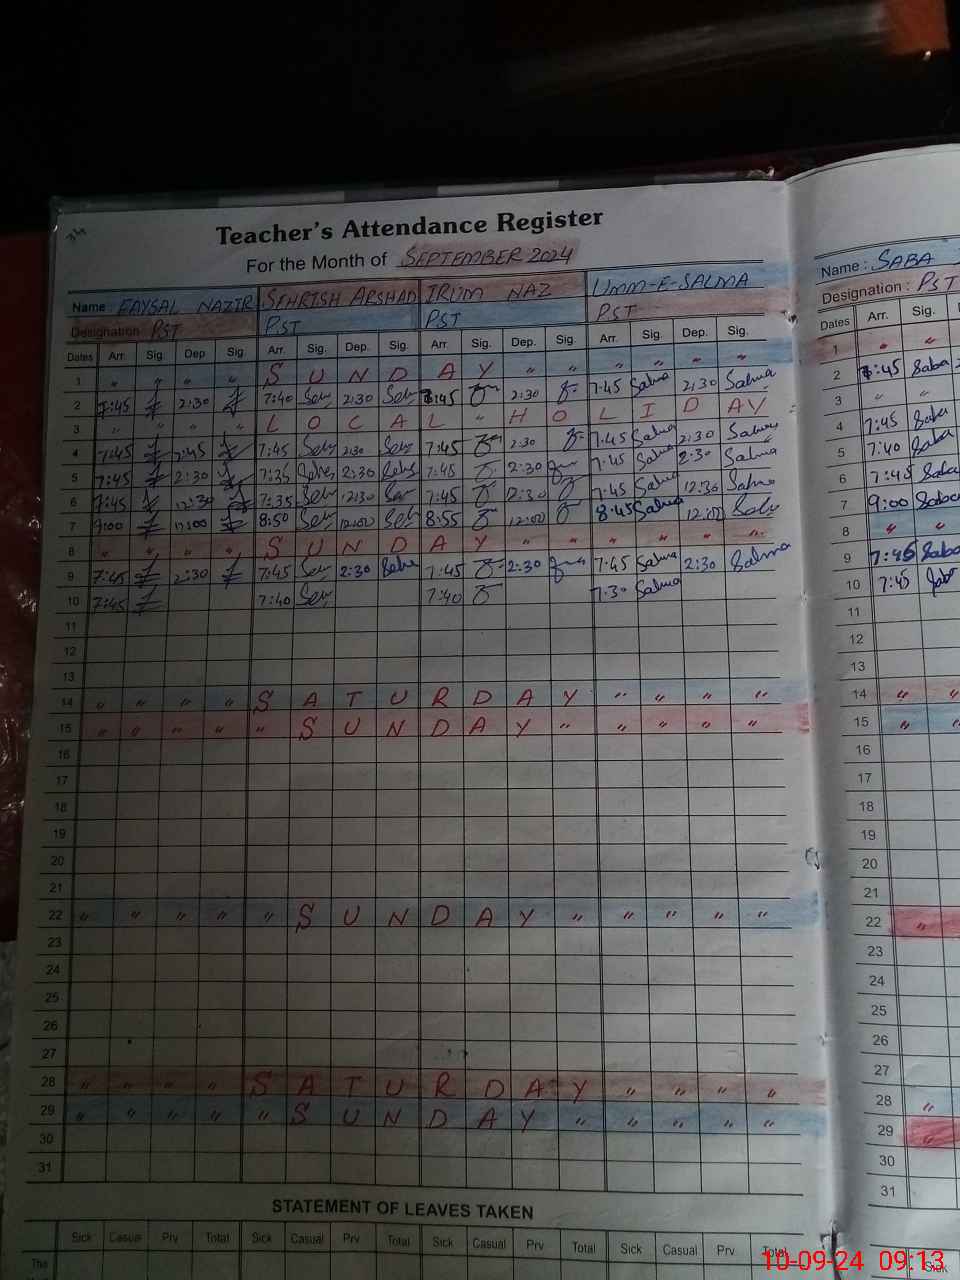 34
Teacher's Attendance Register
For the Month of SEPTEMBER 2024
Name : FAYSAL NAZIR SEHRISH ARSHAD IRUM NAZ UMM-E-SALMA
Designation PST PST PST PST
Dates Arr. Sig. Dep. Sig. Arr. Sig. Dep. Sig. Arr. Sig. Dep. Sig. Arr. Sig. Dep. Sig.
1 " " " " S U N D A Y " " " " " "
2 7:45 2:30 7:40 2:30 7:45 2:30 7:45 Salma 2:30 Salma
3 " " " " L O C A L " H O L I D A Y
4 7:45 2:45 7:45 2:30 7:45 2:30 7:45 Salma 2:30 Salma
5 7:45 2:30 7:35 2:30 7:45 2:30 7:45 Salma 2:30 Salma
6 7:45 12:30 7:35 12:30 7:45 12:30 7:45 Salma 12:30 Salma
7 9:00 12:00 8:50 12:00 8:55 12:00 8:45 Salma 12:00
8 " " " " S U N D A Y " " " " " "
9 7:45 2:30 7:45 2:30 7:45 2:30 7:45 Salma 2:30 Salma
10 7:45 7:40 7:40 7:30 Salma
11
12
13
14 " " " " S A T U R D A Y " " " "
15 " " " " " S U N D A Y " " " " "
16
17
18
19
20
21
22 " " " " " S U N D A Y " " " " "
23
24
25
26
27
28 " " " " S A T U R D A Y " " " "
29 " " " " " S U N D A Y " " " " "
30
31
STATEMENT OF LEAVES TAKEN
Sick Casual Prv Total Sick Casual Prv Total Sick Casual Prv Total Sick Casual Prv Total
The
Name : SABA
Designation : PST
Dates Arr. Sig.
1 " "
2 7:45 Saba
3 " "
4 7:45 Saba
5 7:40 Saba
6 7:45 Saba
7 9:00 Saba
8 " "
9 7:45 Saba
10 7:45
11
12
13
14 " "
15 " "
16
17
18
19
20
21
22 "
23
24
25
26
27
28 "
29 "
30
31
Sick
10-09-24 09:13